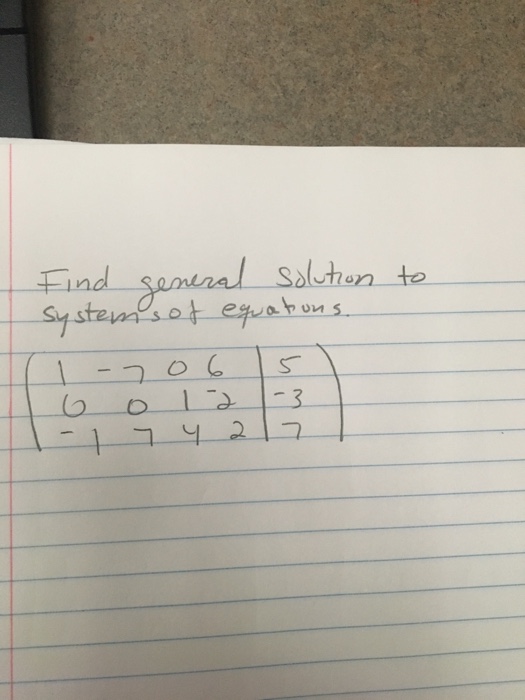 Find general solution to
system's of equations.
1 -7 0 6 | 5
0 0 1 -2 | -3
-1 7 4 2 | 7